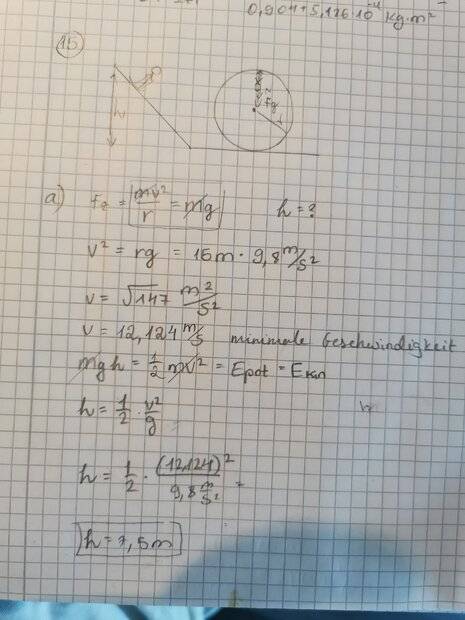 0,904 + 5,126·10⁻⁴ kg·m²
15
h
Fg
r
a) Fz = mv²/r = mg h = ?
v² = rg = 15m · 9,8 m/s²
v = √147 m²/s²
v = 12,124 m/s minimale Geschwindigkeit
mgh = 1/2 mv² = Epot = Ekin
h = 1/2 · v²/g
h = 1/2 · (12,124)²/9,8 m/s² =
h = 7,5m